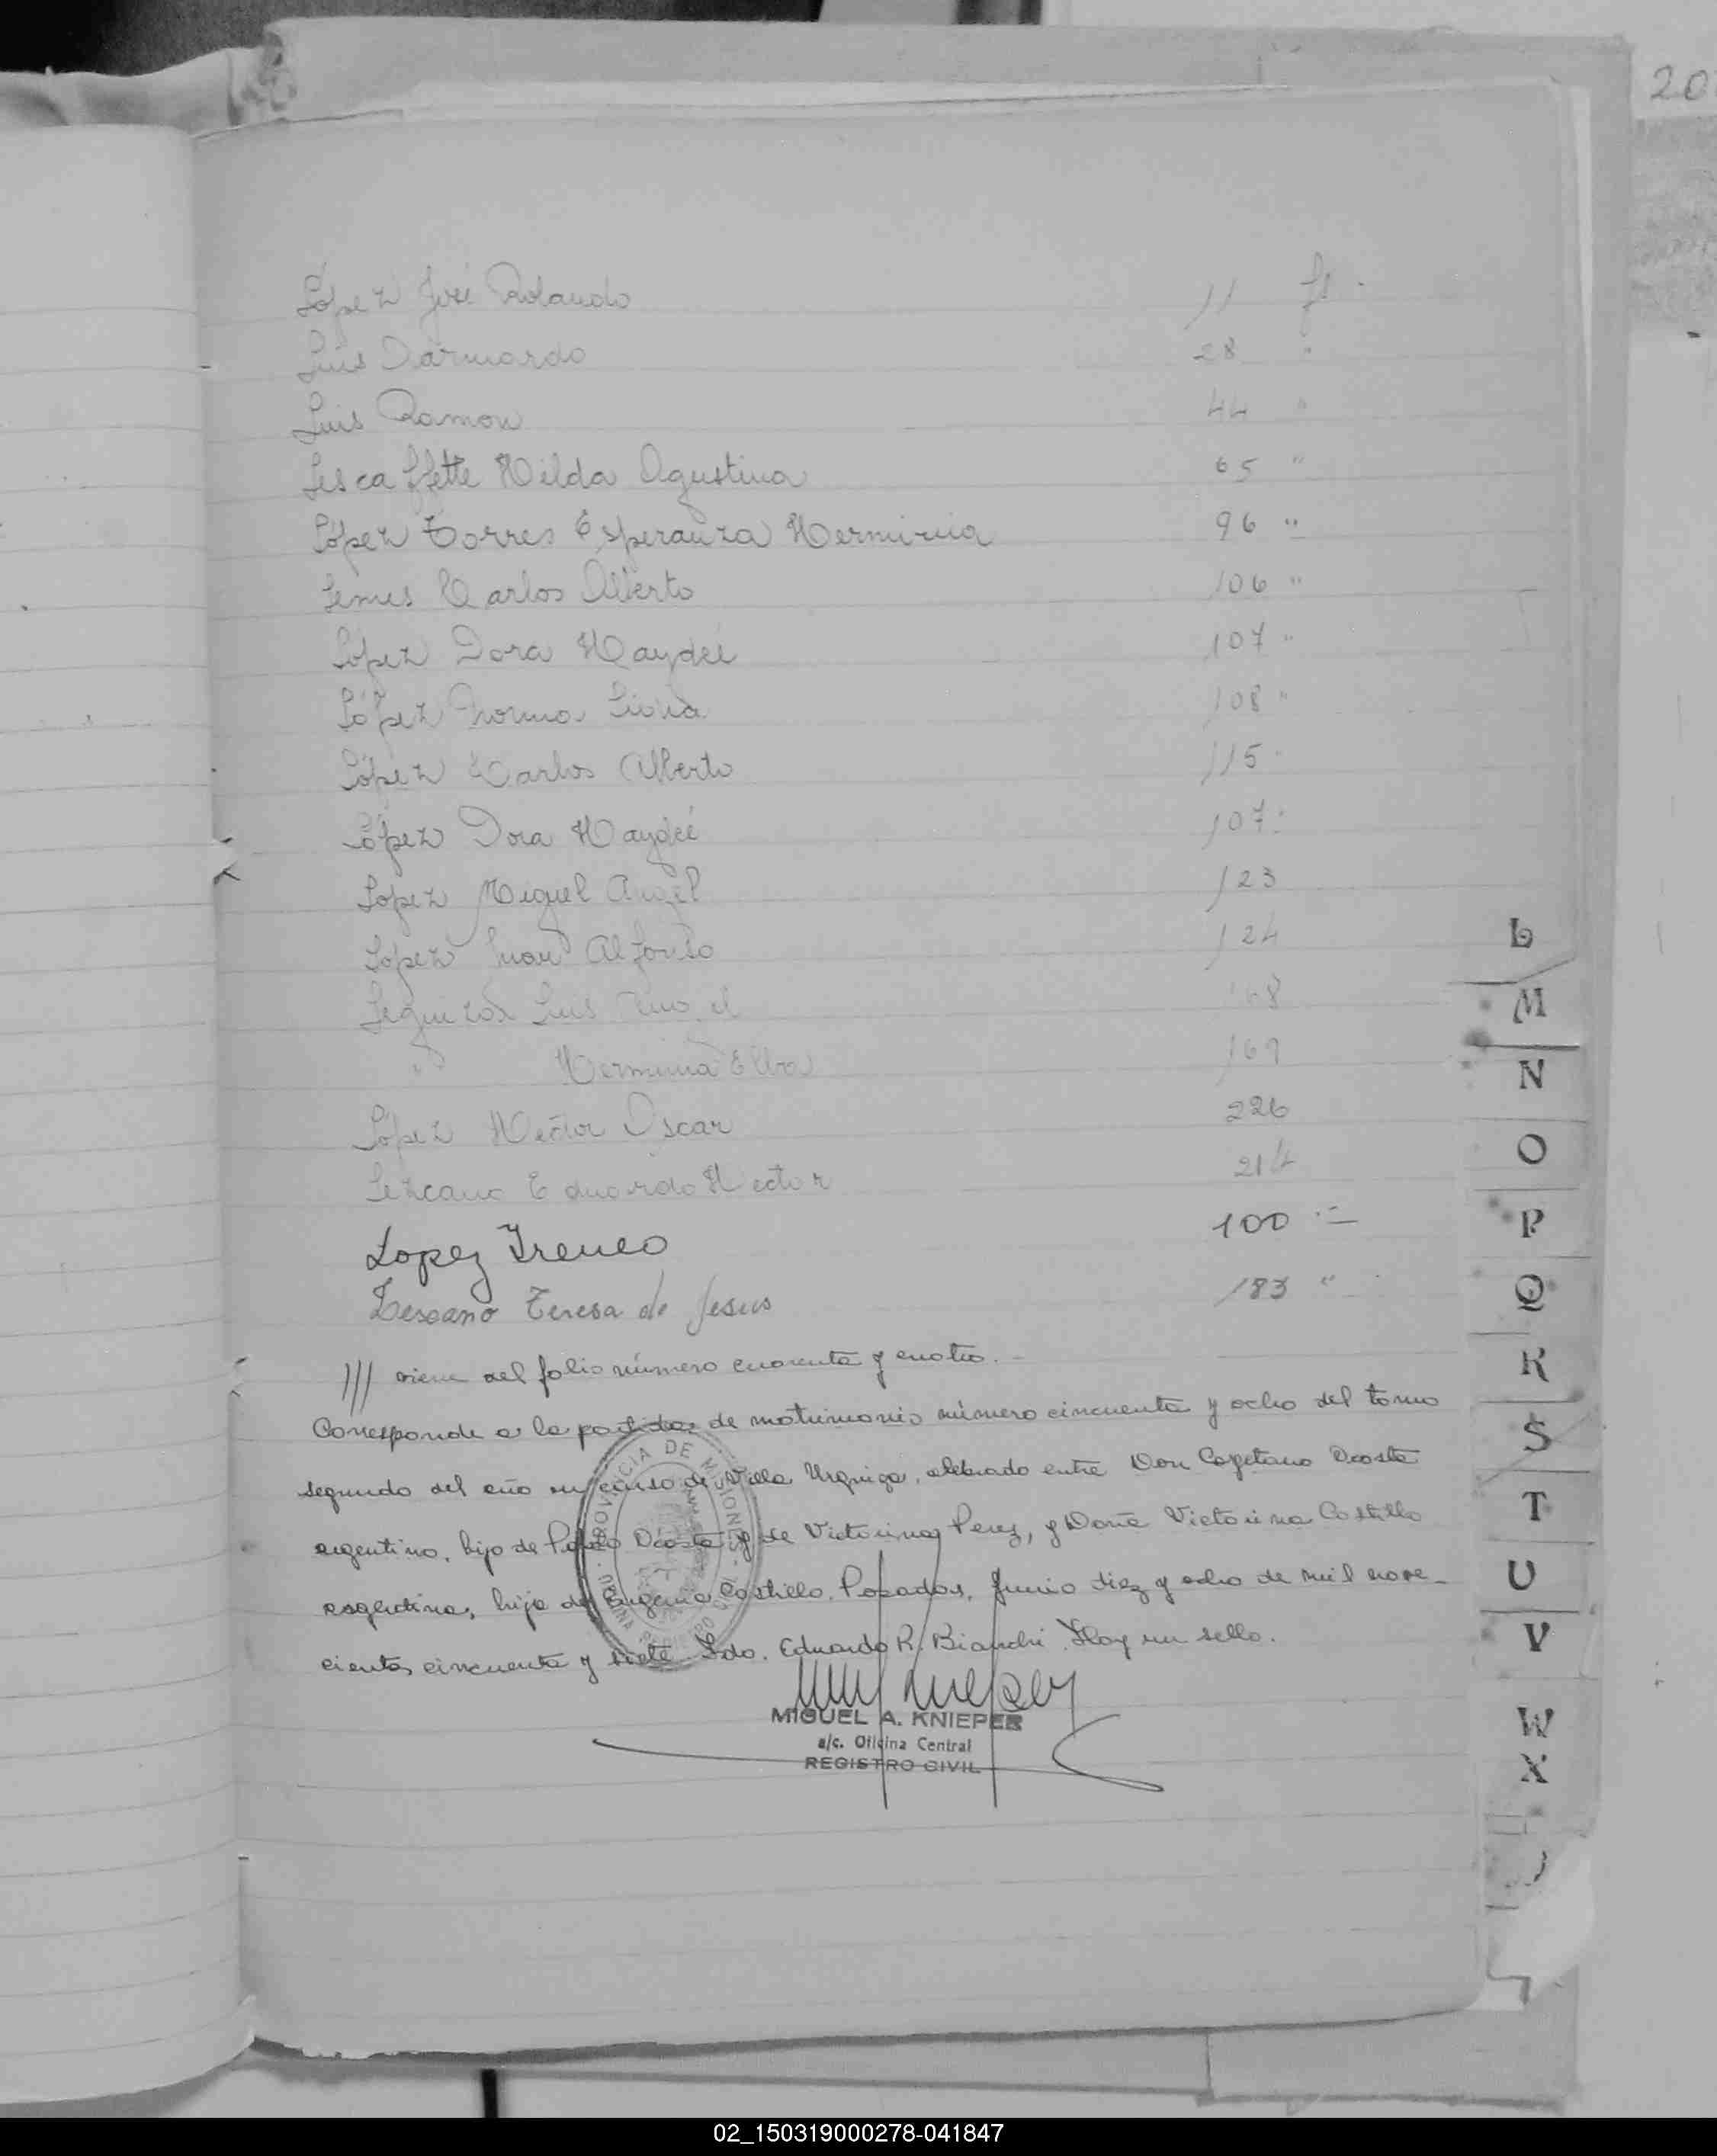 20
López José Rolando 11 fs.
Luis Darmardo 28 "
Luis Ramon 44 "
Lescaffette Hilda Agustina 65 "
López Torres Esperanza Herminia 96 "
Lemes Carlos Alberto 106 "
López Dora Haydée 107 "
López Norma Livia 108 "
López Carlos Alberto 115 "
López Dora Haydée 107 "
Lopez Miguel Angel 123
López Juan Alfonso 124
Leguizas Luis
" Herminia Elba 169
López Hector Oscar 226
Lezcano Eduardo Hector 214
Lopez Ireneo 100 "
Lescano Teresa de Jesus 183 "
/// viene del folio número cuarenta y cuatro.-
Corresponde a la partida de matrimonio número cincuenta y ocho del tomo
segundo del año en curso de Villa Urquiza, celebrado entre Don Cayetano Dcosta
argentino, hijo de Pedro Dcosta y de Victorina Perez, y Doña Victorina Castillo
argentina, hija de Eugenia Castillo. Posadas, Junio diez y ocho de mil nove-
cientos cincuenta y siete. Fdo. Eduardo R. Bianchi. Hay un sello.
PROVINCIA DE MISIONES
MIGUEL A. KNIEPER
a/c. Oficina Central
REGISTRO CIVIL
L
M
N
O
P
Q
R
S
T
U
V
W
X
02_150319000278-041847